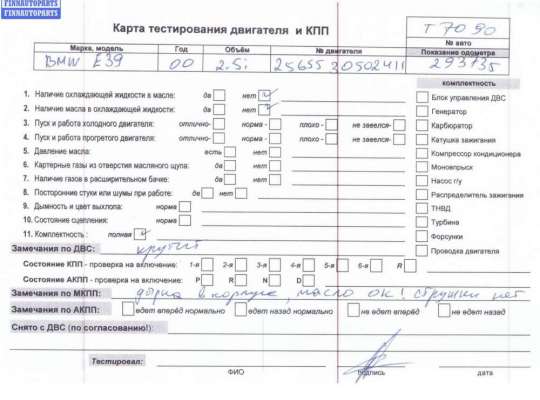 FINNAUTOPARTS
FINNAUTOPARTS
Карта тестирования двигателя и КПП
Т 7090
№ авто
Марка, модель Год Объём № двигателя Показание одометра
BMW E39 00 2.5i 25655 30502411 293735
комплектность
1. Наличие охлаждающей жидкости в масле: да нет
Блок управления ДВС
2. Наличие масла в охлаждающей жидкости: да нет
Генератор
3. Пуск и работа холодного двигателя: отлично- норма - плохо - не завелся-
Карбюратор
4. Пуск и работа прогретого двигателя: отлично- норма - плохо - не завелся-
Катушка зажигания
5. Давление масла: есть нет
Компрессор кондиционера
6. Картерные газы из отверстия масляного щупа: да нет
Моновпрыск
7. Наличие газов в расширительном бачке: да нет
Насос г/у
8. Посторонние стуки или шумы при работе: да нет
Распределитель зажигания
9. Дымность и цвет выхлопа: норма
ТНВД
10. Состояние сцепления: норма
Турбина
11. Комплектность : полная
Форсунки
Замечания по ДВС: крутит
Проводка двигателя
Состояние КПП - проверка на включение: 1-я 2-я 3-я 4-я 5-я 6-я R
Состояние АКПП - проверка на включение: P R N D
Замечания по МКПП: дырка в корпусе, масло ок! стружки нет
Замечания по АКПП: едет вперёд нормально едет назад нормально не едет вперёд не едет назад
Снято с ДВС (по согласованию!):
Тестировал:
ФИО подпись дата